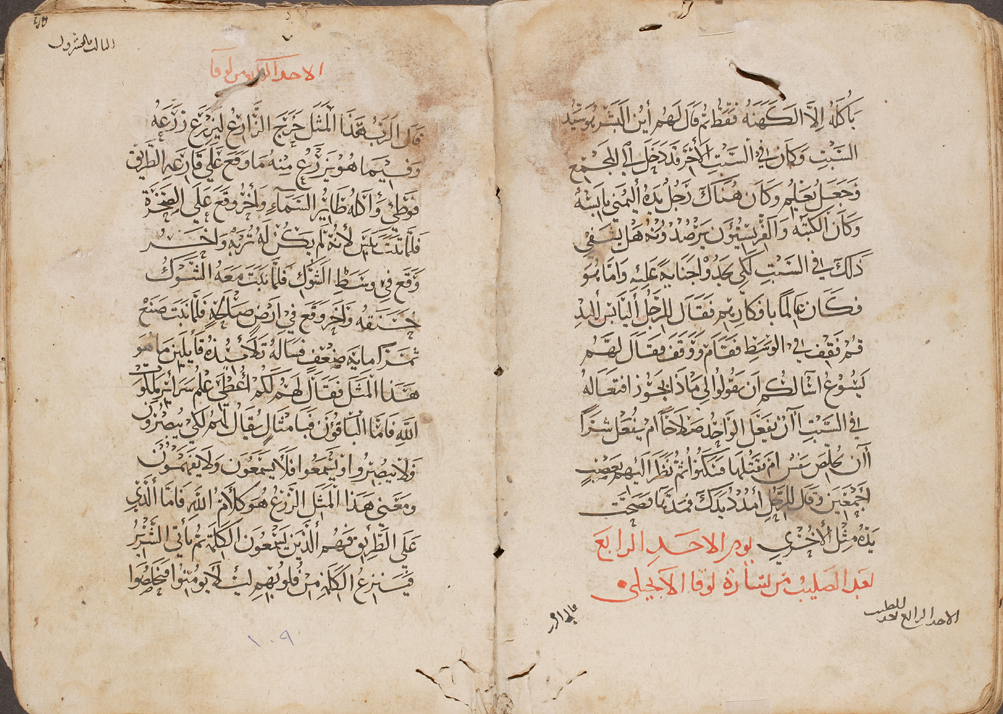 ياكله الا الكهنه فقط ثم قال لهم ابن البشر هو سيد
السبت وكان في السبت الاخر قد دخل الى المجمع
وجعل يعلم وكان هناك رجل يده اليمنى يابسه
وكان الكتبه والفريسيون يرصدونه هل يشفي
ذلك في السبت لكي يجدوا جنايه عليه واما هو
فكان عالما بافكارهم فقال للرجل اليابس اليد
قم فقف في الوسط فقام ووقف فقال لهم
يسوع اسالكم ان تقولوا لي ماذا يجوز افتعاله
في السبت اان يفعل الواحد صلاحا ام يفعل شرا
اان يخلص نفس ام يقتلها فسكتوا ثم نظر اليهم بغضب
اجمعين وقال للرجل امدد يدك فمدها فصحت
يده مثل الاخرى يوم الاحد الرابع
بعد الصليب من بشارة لوقا الانجيلي
الاحد الرابع بعد الصليب
الاحد الرابع من لوقا
قال الرب هذا المثل خرج الزارع ليزرع زرعه
وفيما هو يزرع منه ما وقع على قارعه الطريق
فوطي واكله طاير السماء واخر وقع على الصخرة
فلما نبت يبس لانه لم يكن له تربه واخر
وقع في وسط الشوك فلما نبت معه الشوك
خنقه واخر وقع في ارض صالحه فلما نبت صنع
ثمرا مايه ضعف فساله تلاميذه قايلين ما هو
هذا المثل فقال لهم لكم اعطي علم سراير ملكوت
الله فاما الباقون فبامثال يقال لهم لكي يبصرون
ولا يبصروا ويسمعوا فلا يسمعون ولا يفهمون
ومعنى هذا المثل الزرع هو كلام الله فاما الذي
على الطريق فهم الذين يسمعون الكلمة ثم ياتي الشرير
فينزع الكلمة من قلوبهم ليلا يومنوا فيخلصوا
١٠٩